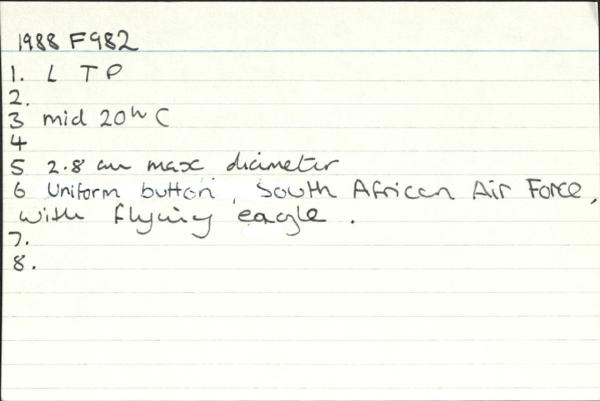 1988 F982
1. L T P
2.
3 mid 20th C
4
5 2.8 cm max diameter
6 Uniform button, South African Air Force,
with flying eagle.
7.
8.